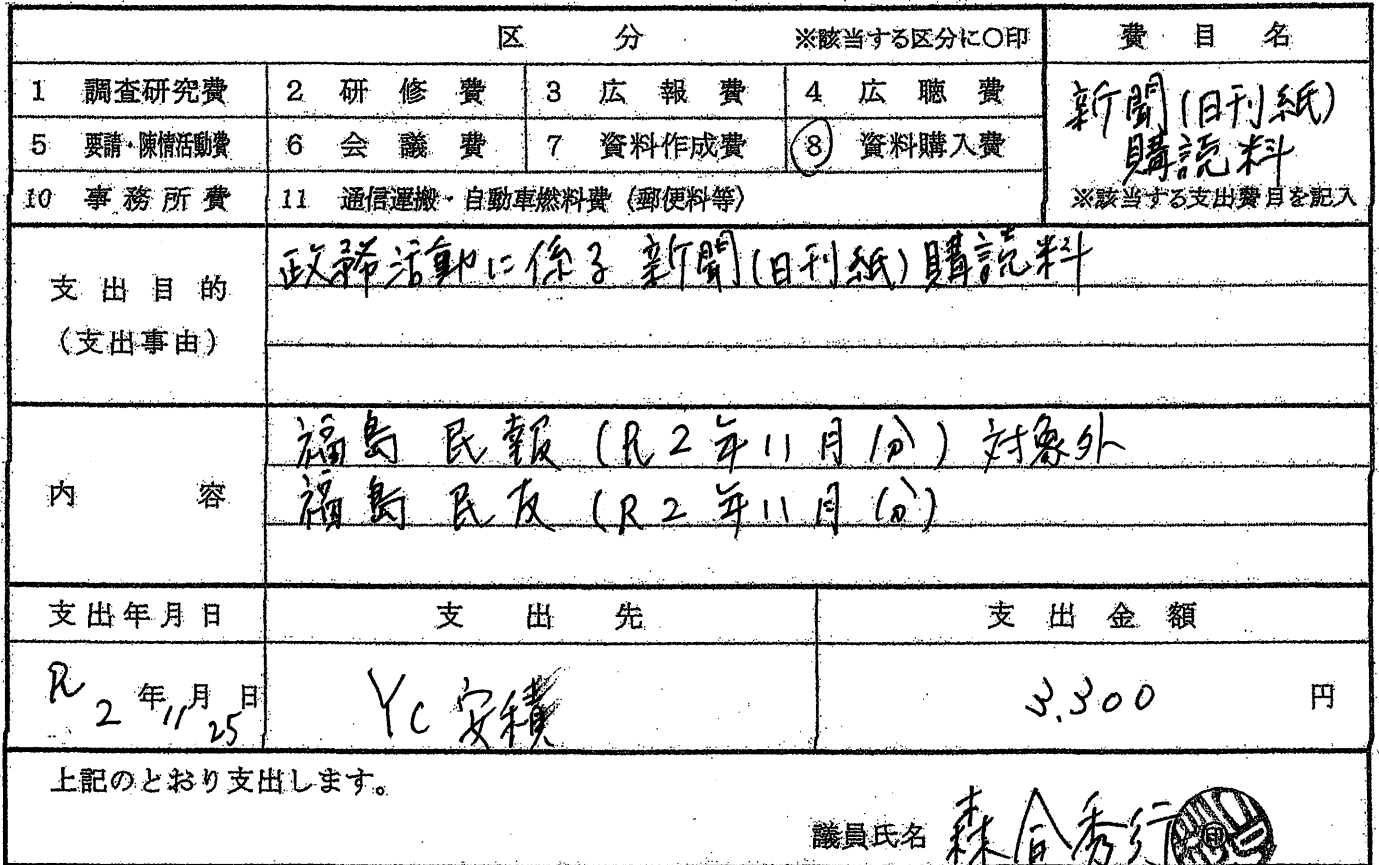 区 分 ※該当する区分に○印
費 目 名
1 調査研究費 2 研 修 費 3 広 報 費 4 広 聴 費
5 要請・陳情活動費 6 会 議 費 7 資料作成費 8 資料購入費
10 事務所費 11 通信運搬・自動車燃料費（郵便料等）
新聞(日刊紙)
購読料
※該当する支出費目を記入
支出目的
（支出事由）
政務活動に係る 新聞(日刊紙)購読料
内 容
福島 民報 (R2年11月分) 対象外
福島 民友 (R2年11月分)
支出年月日 支 出 先 支 出 金 額
R2年11月25日 YC安積 3,300 円
上記のとおり支出します。
議員氏名 森合秀行